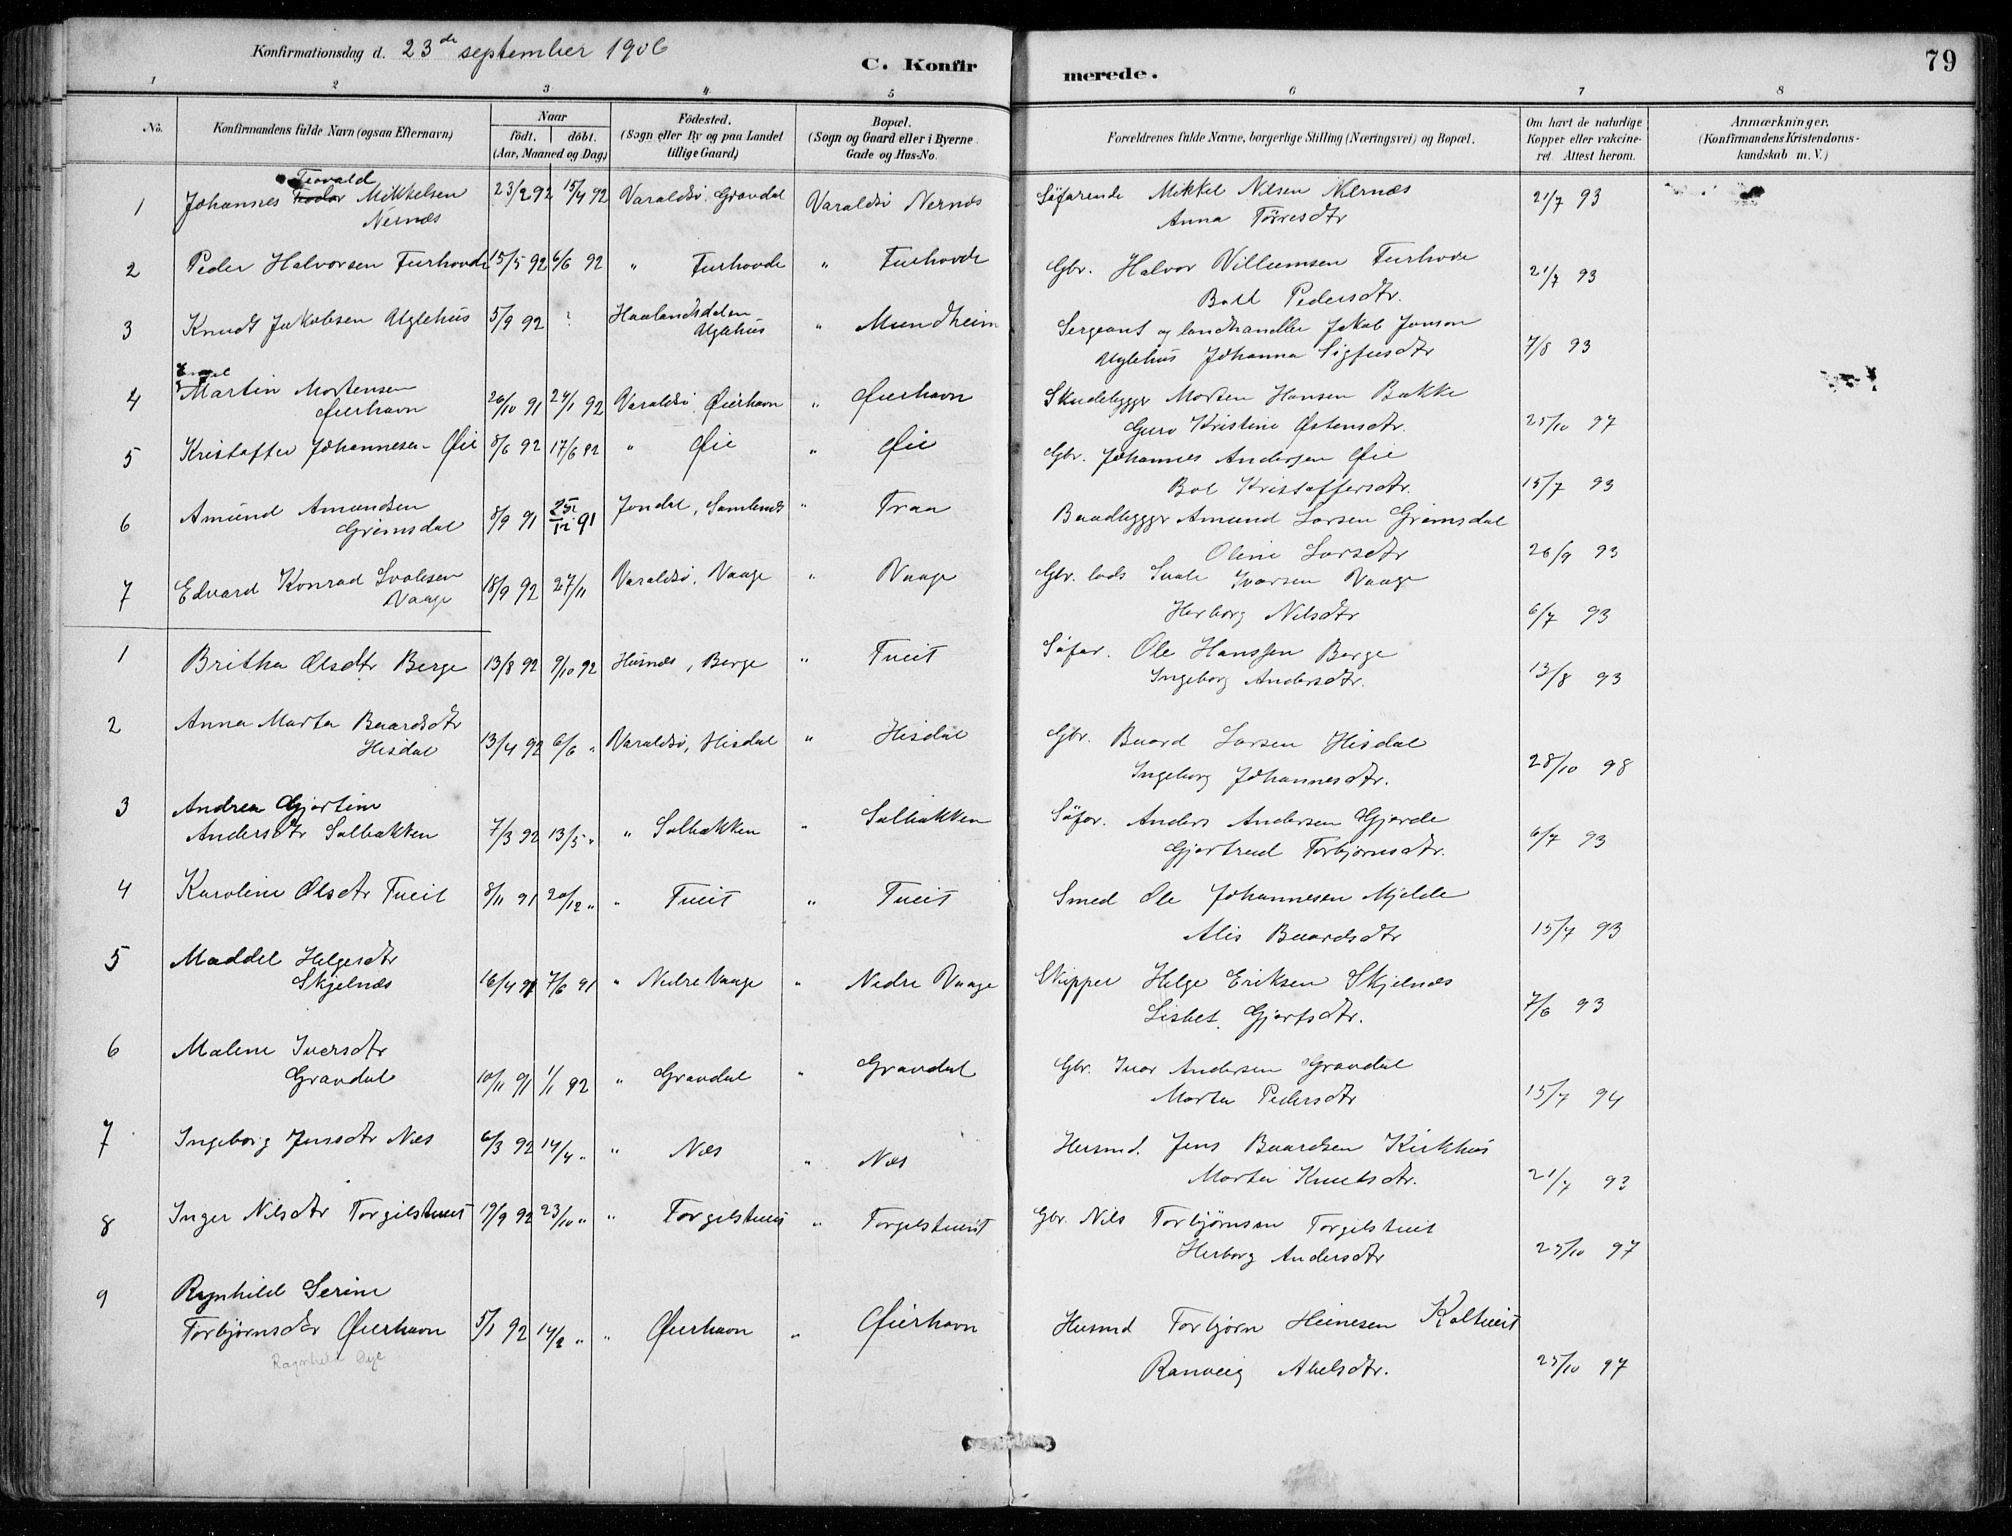 Konfirmationsdag d. 23de september 1906
C. Konfirmerede.
79
1 2 3 4 5 6 7 8
No. Konfirmandens fulde Navn (ogsaa Efternavn) Naar født. døbt. (Aar, Maaned og Dag) Fødested. (Sogn eller By og paa Landet tillige Gaard) Bopæl. (Sogn og Gaard eller i Byerne Gade og Hus-No. Forældrenes fulde Navne, borgerlige Stilling (Næringsvei) og Bopæl. Om havt de naturlige Kopper eller vakcineret. Attest herom. Anmærkninger. (Konfirmandens Kristendomskundskab m. V.)
Teovald
1 Johannes Mikkelsen 23/2 92 15/4 92 Varaldsö, Gravdal Varaldsö Nernæs Söfarende Mikkel Nilsen Nernæs 21/7 93
Nernæs Anna Törresdtr
2 Peder Halvorsen Furhovde 15/5 92 6/6 92 " Furhovde " Furhovde Gbr. Halvor Villumsen Furhovde 21/7 93
Boll Pedersdtr.
3 Knudt Jakobsen Uglehus 5/9 92 ? Haalandsdalen " Mundheim Sergeant og landhandler Jakob Jonson
Uglehus Uglehus Johanna Sigfusdtr 7/8 93
4 Martin Mortensen 26/10 91 24/1 92 Varaldsö, Øierhavn " Øierhavn Skudebygger Morten Hansen Bakke
Øierhavn Guro Kristine Østensdtr. 25/10 97
5 Kristoffer Johannesen Øie 8/6 92 17/6 92 " Øie " Øie Gbr. Johannes Andersen Øie
Bol Kristoffersdtr. 15/7 93
6 Amund Amundsen 8/9 91 25/12 91 Jondal, Samland " Traa Baadbygger Amund Larsen Grimsdal
Grimsdal Oline Larsdtr 26/9 93
7 Edvard Konrad Ivarsen 18/9 92 27/11 Varaldsö, Vaage " Vaage Gbr. lods Ivarsen Vaage
Vaage Herborg Nilsdtr 6/7 93
1 Britha Olsdtr Berge 13/8 92 9/10 92 Husnæs, Berge " Tueit Søfar. Ole Hanssen Berge
Ingeborg Andersdtr. 13/8 93
2 Anna Marta Baardsdtr 13/4 92 6/6 " Varaldsö, Hisdal " Hisdal Gbr. Baard Larsen Hisdal
Hisdal Ingeborg Johannesdtr. 28/10 98
3 Andrea Gjertine
Andersdtr Solbakken 7/3 92 13/5 " " Solbakken " Solbakken Söfar. Anders Andersen Gjerde 6/7 93
Gjertrud Torbjørnsdtr.
4 Karoline Olsdtr Tueit 8/11 91 20/12 " " Tueit " Tueit Smed Ole Johannesen Mjelde
Alis Baardsdtr 15/7 93
5 Maddel Helgesdtr
Skjelnæs 16/4 91 7/6 91 " Nedre Vaage " Nedre Vaage Skipper Helge Eriksen Skjelnæs
Lisbet Gjertsdtr. 7/6 93
6 Malene Iversdtr
Gravdal 10/11 91 1/1 92 " Gravdal " Gravdal Gbr. Ivar Andersen Gravdal
Marta Pedersdtr 15/7 94
7 Ingeborg Jensdtr Næs 6/3 92 14/4 " " Næs " Næs Husmd. Jens Baardsen Kirkhus
Marta Knutsdtr. 21/7 93
8 Inger Nilsdtr Torgilstueit 19/9 92 23/10 " " Torgilstueit " Torgilstueit Gbr. Nils Torbjørnsen Torgilstueit
Herborg Andersdtr 25/10 97
9 Ragnhild Serine
Torbjørnsdtr Øierhavn 5/1 92 14/2 " " Øierhavn " Øierhavn Husmd Torbjørn Heinesen Koltueit
Ragnhild Øye Ranveig Abelsdtr. 25/10 97